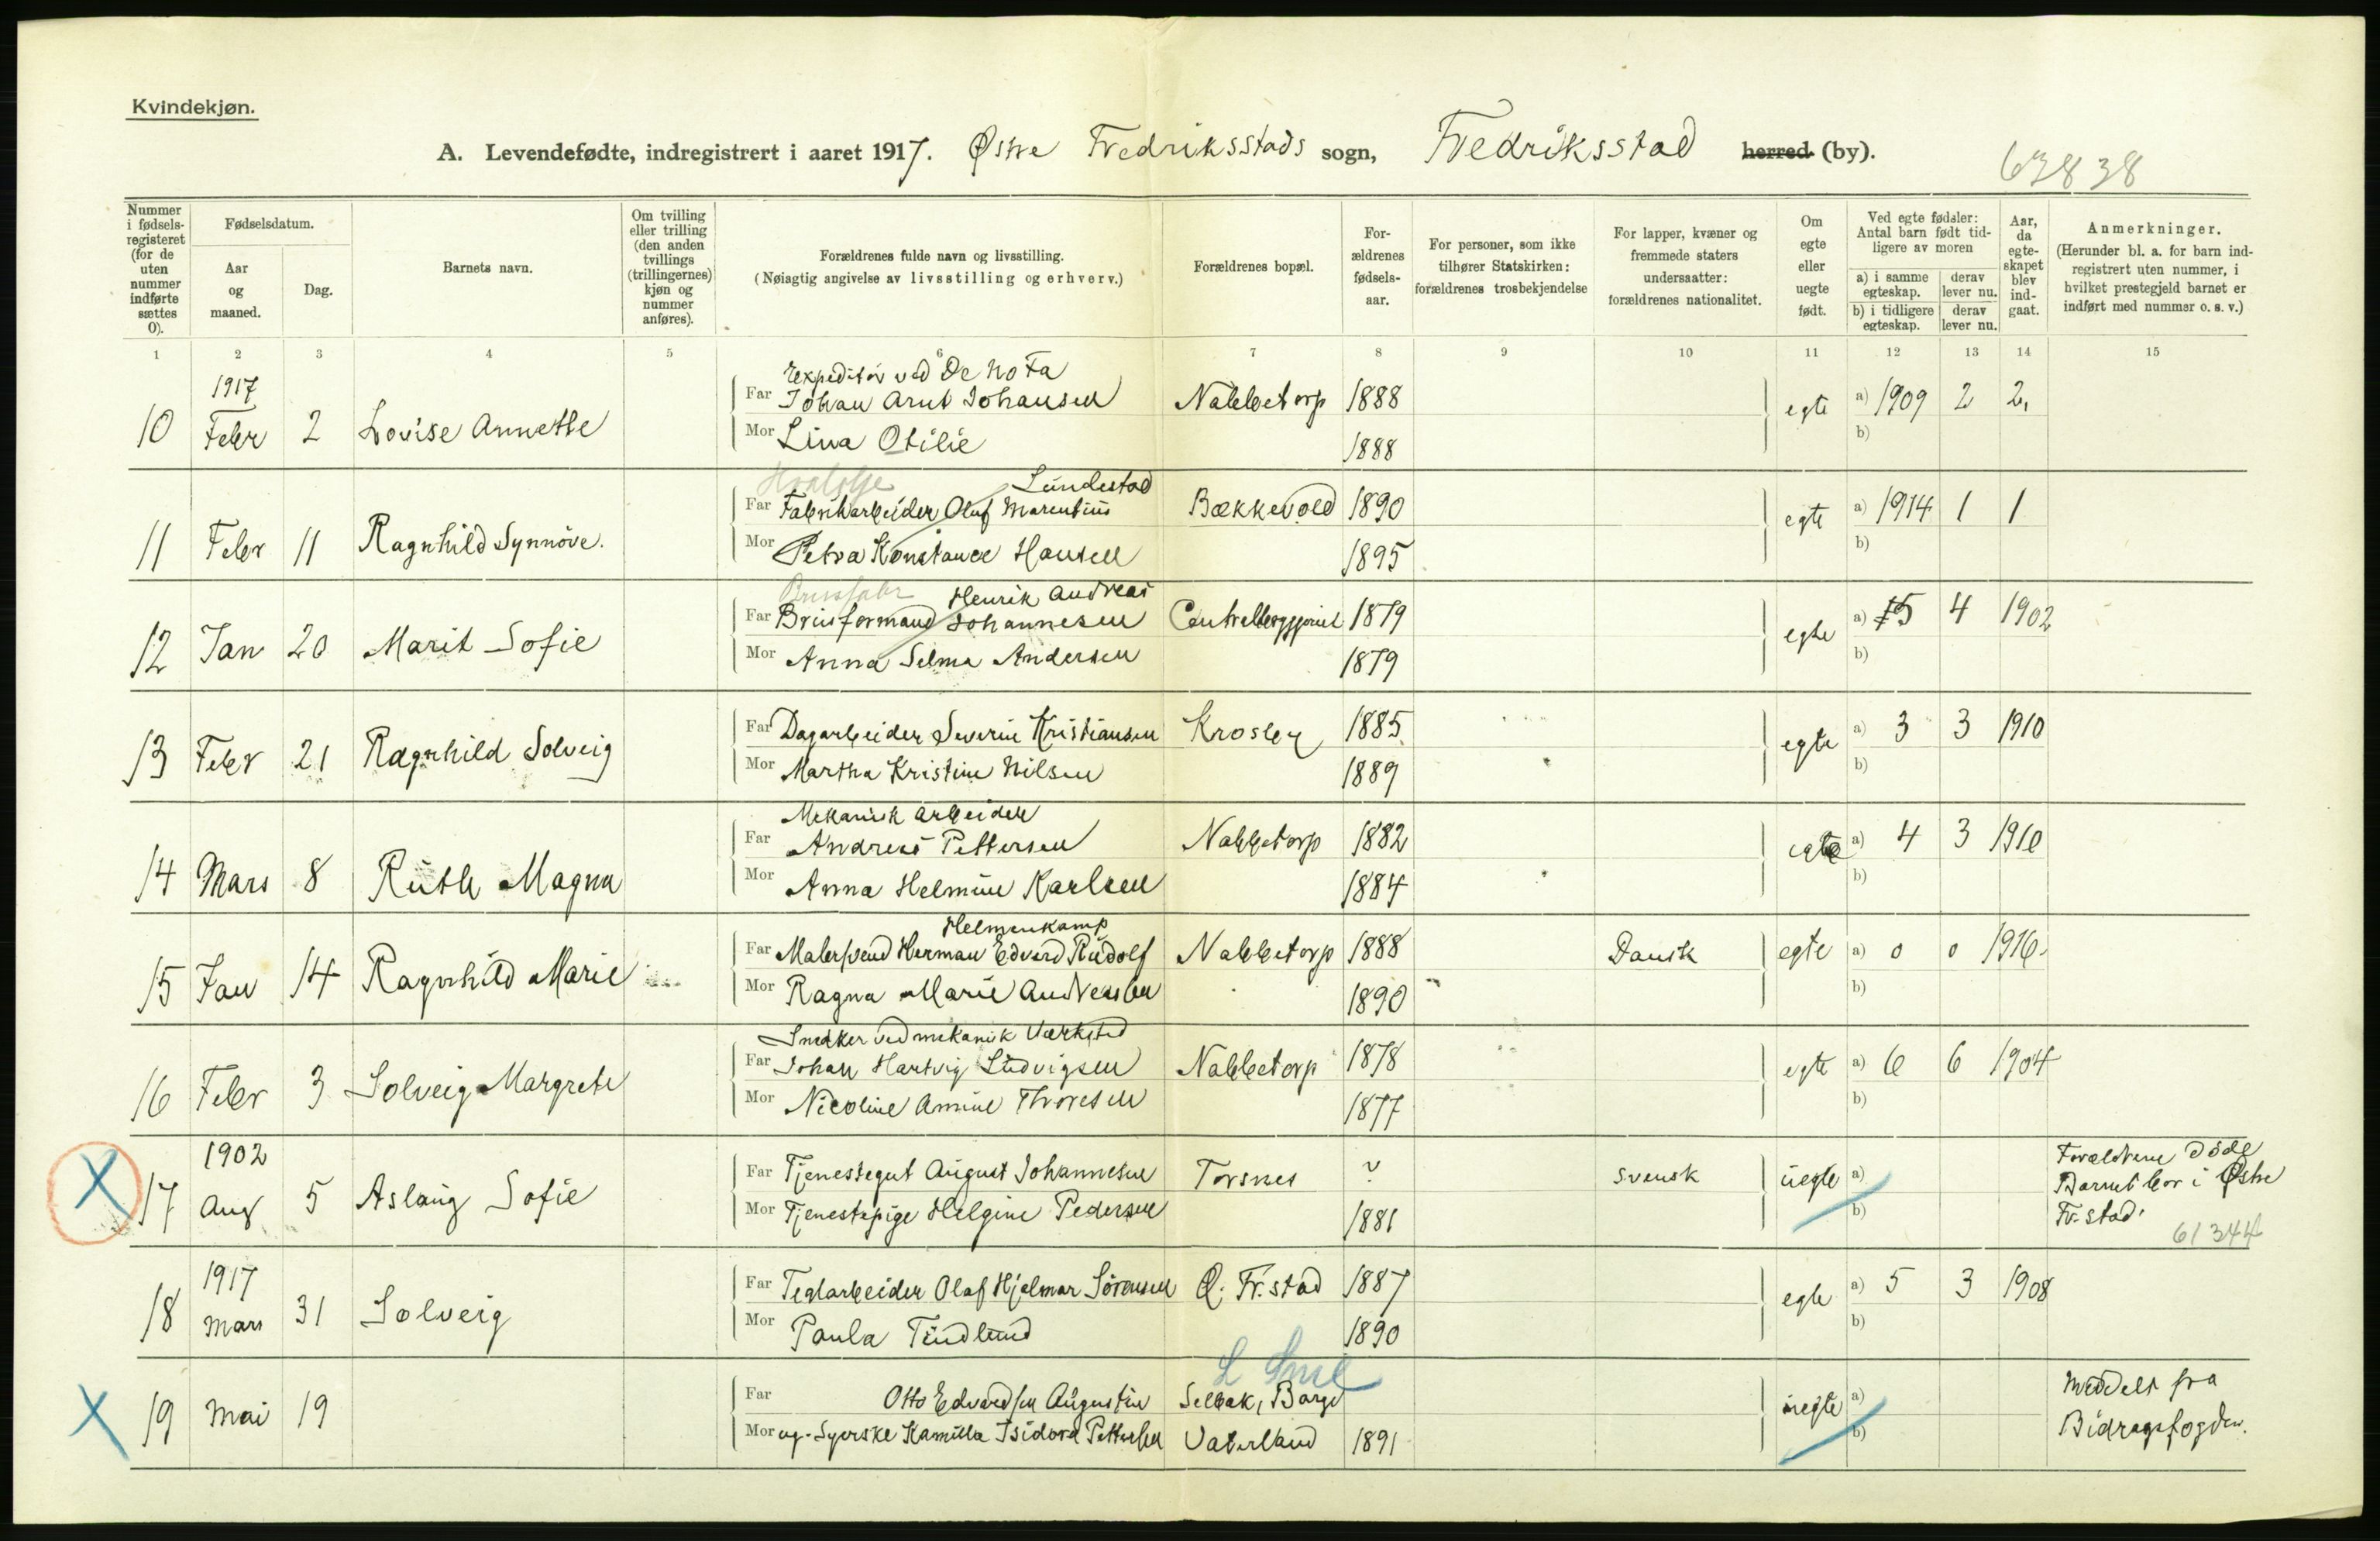 Kvindekjøn.
A. Levendefødte, indregistrert i aaret 1917. Østre Fredriksstads sogn, Fredriksstad herred (by).
63838
Nummer i fødsels-registeret (for de uten nummer indførte sættes 0).
Fødselsdatum.
Aar og maaned.
Dag.
Barnets navn.
Om tvilling eller trilling (den anden tvillings (trillingernes) kjøn og nummer anføres).
Forældrenes fulde navn og livsstilling.
(Nøiagtig angivelse av livsstilling og erhverv.)
Forældrenes bopæl.
For-ældrenes fødsels-aar.
For personer, som ikke tilhører Statskirken: forældrenes trosbekjendelse
For lapper, kvæner og fremmede staters undersaatter: forældrenes nationalitet.
Om egte eller uegte født.
Ved egte fødsler: Antal barn født tid-ligere av moren
a) i samme egteskap. derav lever nu.
b) i tidligere egteskap. derav lever nu.
Aar, da egte-skapet blev ind-gaat.
Anmerkninger.
(Herunder bl. a. for barn ind-registrert uten nummer, i hvilket prestegjeld barnet er indført med nummer o. s. v.)
1 2 3 4 5 6 7 8 9 10 11 12 13 14 15
1917
Expeditør ved De No Fa
10 Febr 2 Lovise Annette Far Johan Arnt Johansen Nabbetorp 1888 egte a) 1909 2 2,
Mor Lina Otilie 1888 b)
Lundestad
11 Febr 11 Ragnhild Synnöve. Far Fabrikarbeider Oluf Marentius Bækkevold 1890 egte a) 1914 1 1
Mor Petra Konstance Hansen 1895 b)
Henrik Andreas
12 Jan 20 Marit Sofie Far Brusformand Johannesen 1879 egte a) 5 4 1902
Mor Anna Selma Andersen 1879 b)
13 Febr 21 Ragnhild Solveig Far Dagarbeider Severin Kristiansen Krosby 1885 egte a) 3 3 1910
Mor Martha Kristine Nilsen 1889 b)
Mekanisk arbeider
14 Mars 8 Ruth Magna Far Andreas Pettersen Nabbetorp 1882 egte a) 4 3 1910
Mor Anna Helmine Karlsen 1884 b)
Helmenkamp
15 Jan 14 Ragnhild Marie Far Malersvend Herman Edvard Rudolf Nabbetorp 1888 Dansk egte a) 0 0 1916.
Mor Ragna Marie Andreassen 1890 b)
Snedker ved mekanisk Værksted
16 Febr 3 Solveig Margrete Far Johan Hartvig Ludvigsen Nabbetorp 1878 egte a) 6 6 1904
Mor Nicoline Amine Thoresen 1877 b)
1902
X 17 Aug 5 Aslaug Sofie Far Tjenestegut August Johannesen Torsnes ? Svensk uegte a) Forældrene døde
Mor Tjenestepige Helgine Pedersen 1881 b) Barnet bor i Østre
Fr.stad.
61344
1917
18 Mars 31 Solveig Far Teglarbeider Olaf Hjelmar Sörensen Ö. Fr.stad 1887 egte a) 5 3 1908
Mor Paula Tindlund 1890 b)
X 19 Mai 19 Far Otto Edvardsen Augustin Selbak, Borge uegte a) Meddelt fra
Mor ug. Syerske Kamilla Isidora Pettersen Vaterland 1891 b) Bidragsfogden.